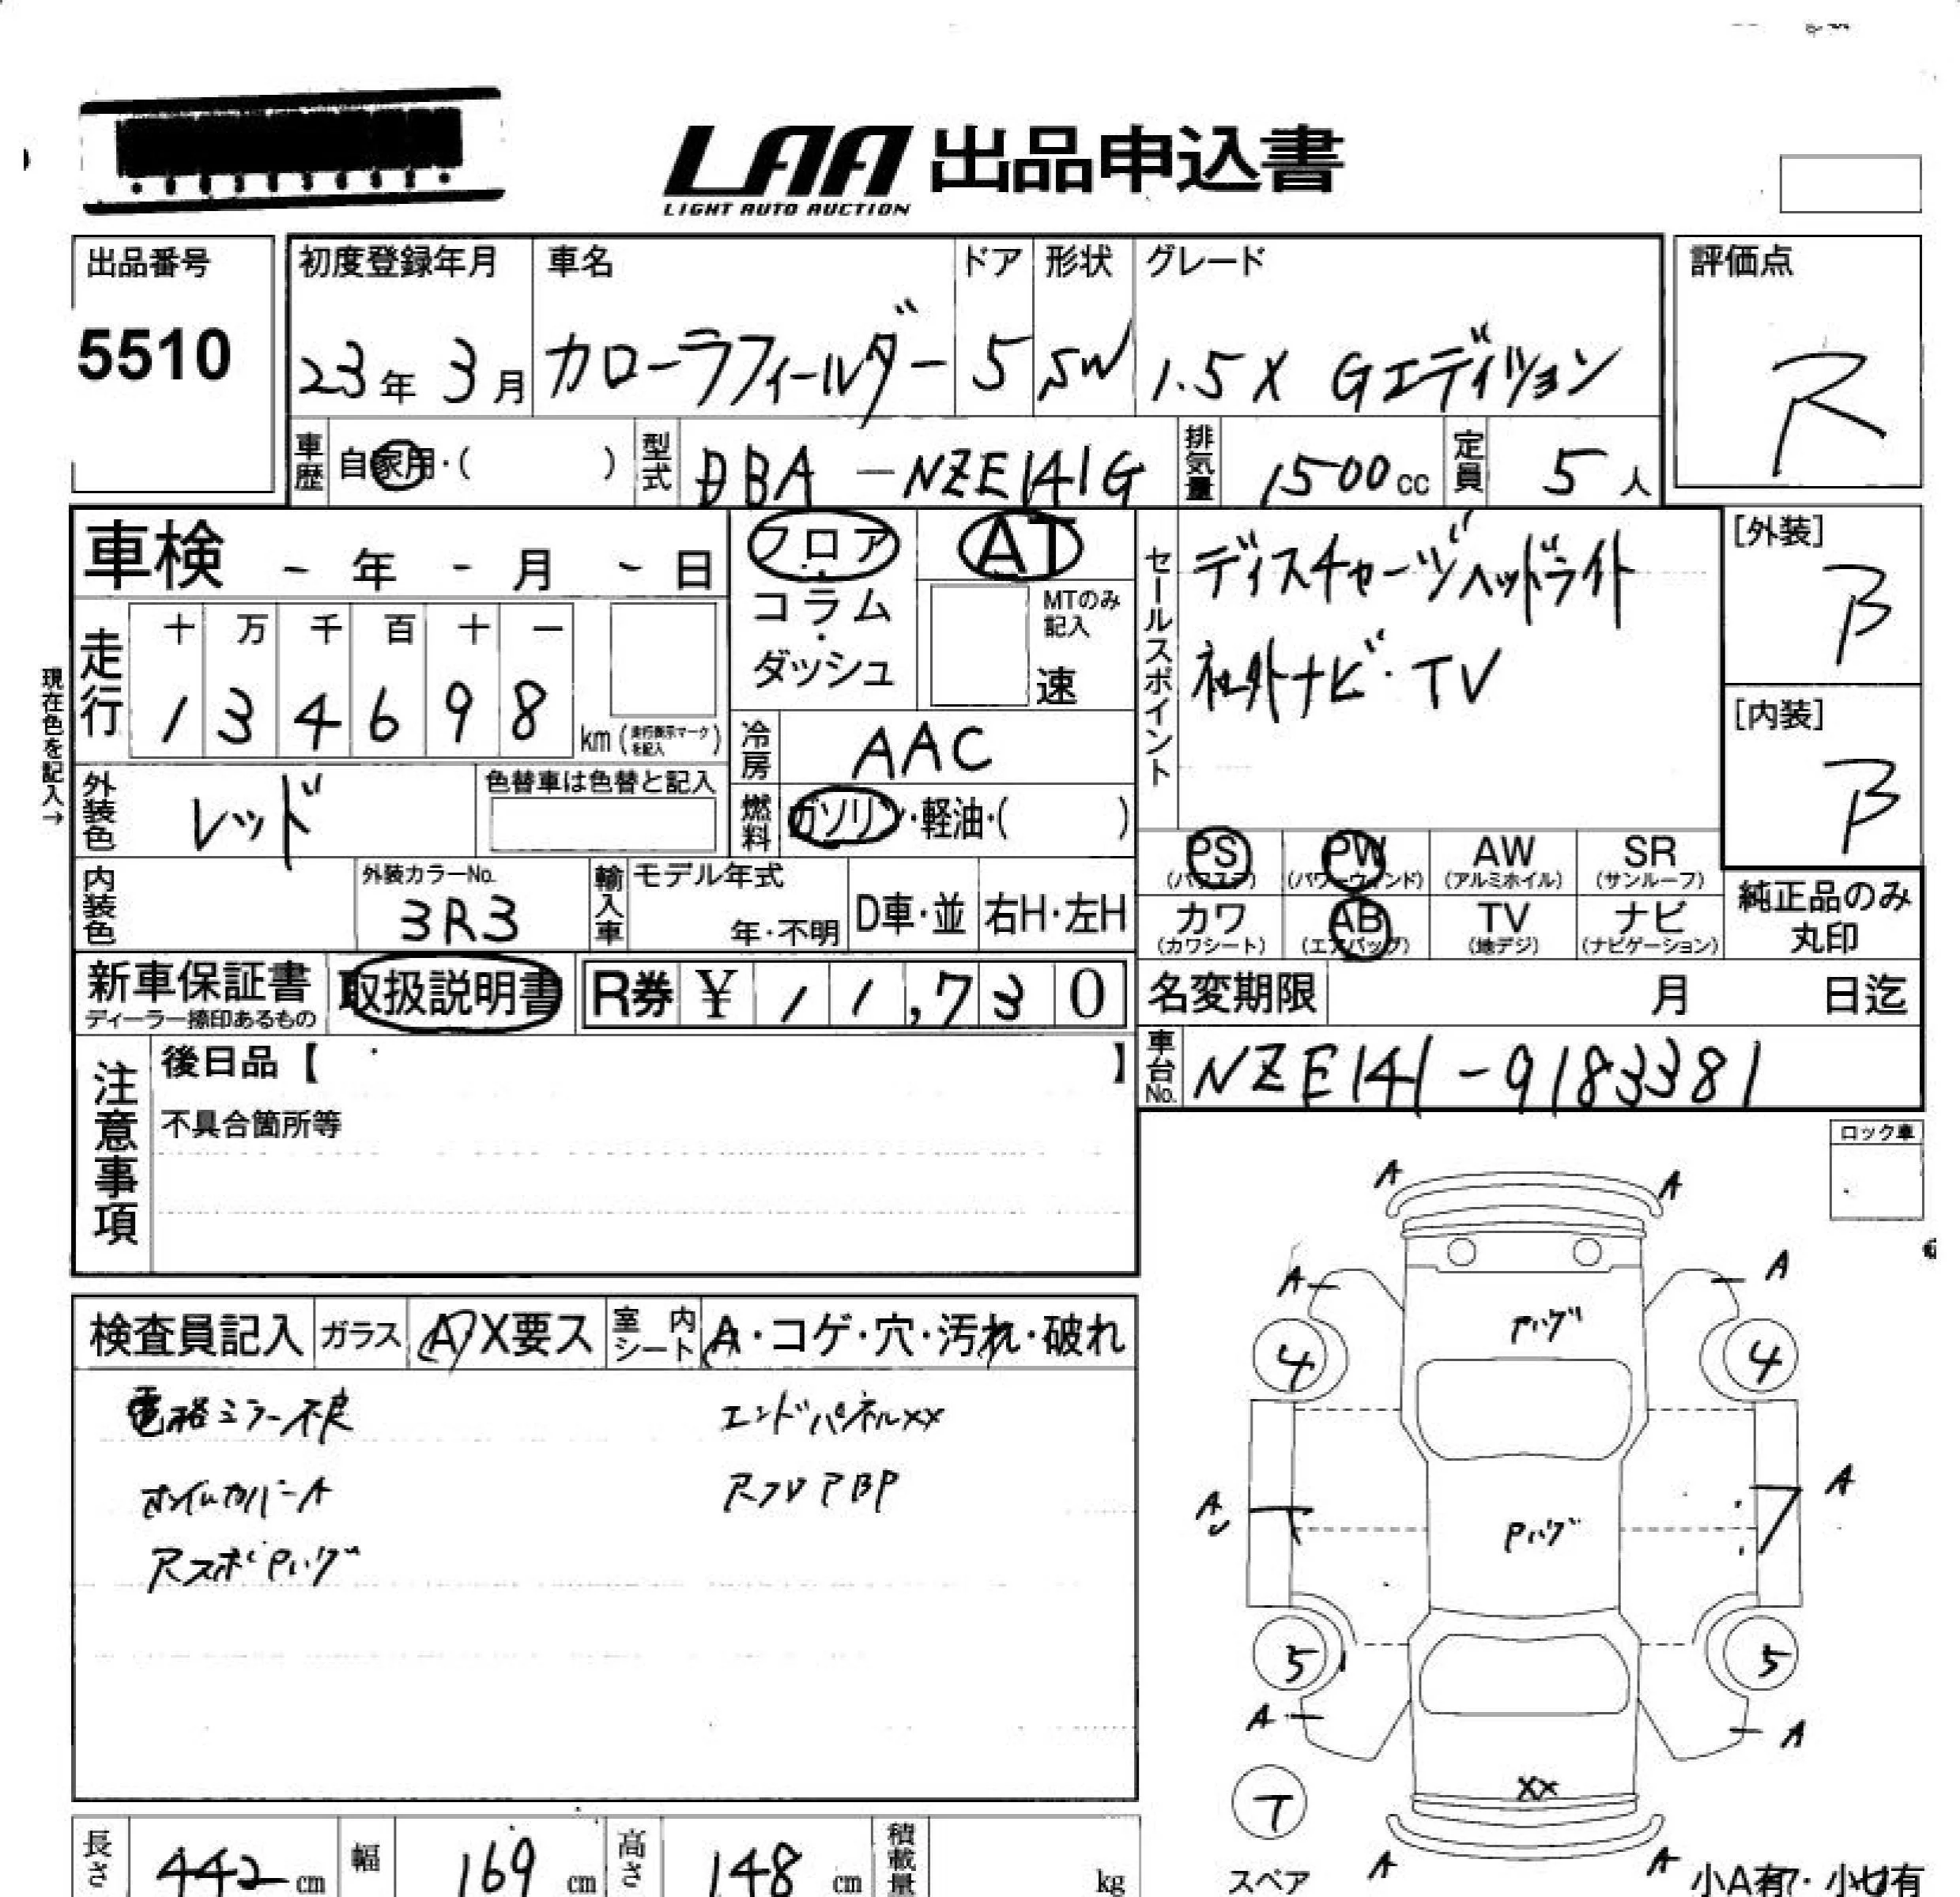 LAA 出品申込書
LIGHT AUTO AUCTION
出品番号
5510
初度登録年月
23年 3月
車名
カローラフィールダー
ドア
5
形状
SW
グレード
1.5X Gエディション
評価点
R
車歴 自家用・( )
型式 DBA-NZE141G
排気量 1500cc
定員 5人
車検 - 年 - 月 - 日
現在色を記入→
走行
十 万 千 百 十 一
1 3 4 6 9 8 km (走行表示マークを記入)
フロア・コラム・ダッシュ
AT
MTのみ記入
速
冷房 AAC
燃料 ガソリン・軽油・( )
セールスポイント
ディスチャージヘッドライト
社外ナビ・TV
[外装]
B
[内装]
B
外装色 レッド
色替車は色替と記入
内装色
外装カラーNo.
3R3
輸入車
モデル年式
年・不明
D車・並
右H・左H
PS
(パワステ)
PW
(パワーウィンド)
AW
(アルミホイル)
SR
(サンルーフ)
カワ
(カワシート)
AB
(エアバッグ)
TV
(地デジ)
ナビ
(ナビゲーション)
純正品のみ
丸印
新車保証書
ディーラー捺印あるもの
取扱説明書
R券 ¥ 11,730
名変期限 月 日迄
車台No. NZE141-9183381
注意事項
後日品【 】
不具合箇所等
ロック車
検査員記入
ガラス A X要ス
室内シート A・コゲ・穴・汚れ・破れ
電格ミラー不良
ホイルカバーA
RスポPハゲ
エンドパネルXX
RフロアBP
A
A
A
A
Pハゲ
4
4
A
A
Pハゲ
5
5
A
A
XX
T
スペア
A
A
長さ 442 cm
幅 169 cm
高さ 148 cm
積載量 kg